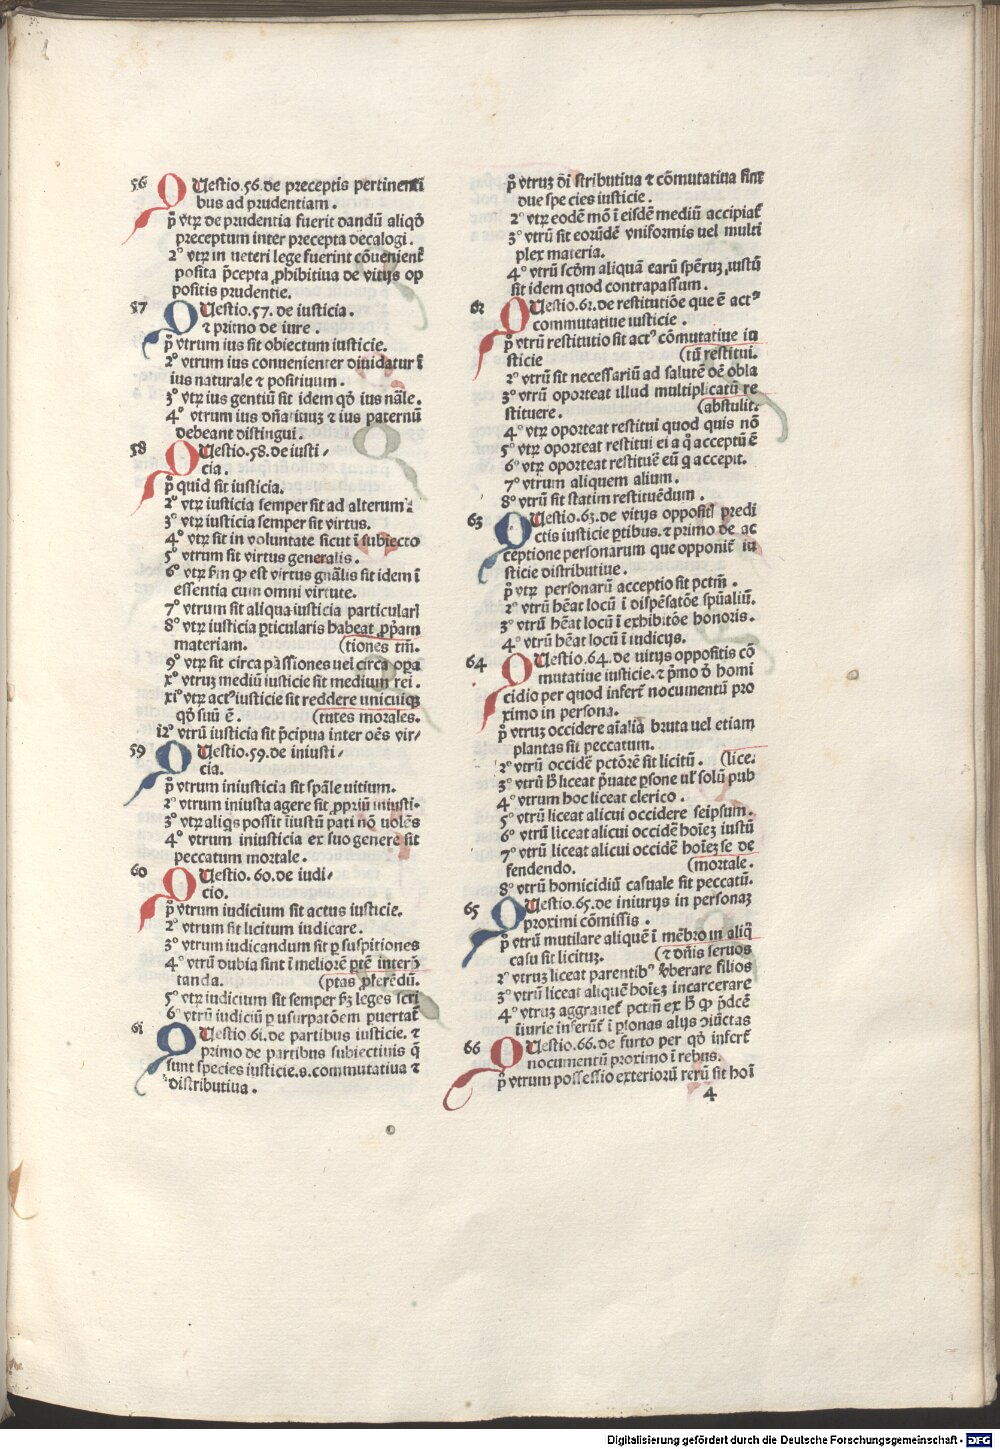 56 QUestio.56.de preceptis pertinenti
bus ad prudentiam.
p̄ vtꝝ de prudentia fuerit dandū aliqđ
preceptum inter precepta decalogi.
2° vtꝝ in ueteri lege fuerint cōuenienṫ
posita p̄cepta ꝓhibitiua de vitijs op
positis prudentie.
57 QUestio.57. de iusticia.
⁊ primo de iure.
p̄ vtrum ius sit obiectum iusticie.
2° vtrum ius conuenienter diuidatur ī
ius naturale ⁊ positiuum.
3° vtꝝ ius gentiū sit idem qđ ius nāle.
4° vtrum ius dña tiuuꝫ ⁊ ius paternū
debeant distingui.
58 QUestio.58.de iusti/
cia.
p̄ quid sit iusticia.
2° vtꝝ iusticia semper sit ad alterum.
3° vtꝝ iusticia semper sit virtus.
4° vtꝝ sit in voluntate sicut ī subiecto
5° vtrum sit virtus generalis.
6° vtꝝ ẜm ꝙ est virtus gnālis sit idem ī
essentia cum omni virtute.
7° vtrum sit aliqua iusticia particulari
8° vtꝝ iusticia ꝑticularis habeat ꝓp̄am
materiam. (tiones tm̄.
9° vtꝝ sit circa passiones uel circa opera
x° vtruꝫ mediū iusticie sit medium rei.
xi° vtꝝ actꝰ iusticie sit reddere unicuiqꝫ
qđ suū ē. (tutes morales.
12° vtrū iusticia sit p̄cipua inter oēs vir/
59 QUestio.59.de iniusti/
cia.
p̄ vtrum iniusticia sit spāle uitium.
2° vtrum iniusta agere sit ꝓpriū iniusti.
3° vtꝝ aliqͥs possit īiustū pati nō uolēs
4° vtrum iniusticia ex suo genere sit
peccatum mortale.
60 QUestio. 60.de iudi/
cio.
p̄ vtrum iudicium sit actus iusticie.
2° vtrum sit licitum iudicare.
3° vtrum iudicandum sit ꝑ suspitiones
4° vtrū dubia sint ī meliorē ꝑtē interp̄
tanda. (ptas ꝓferēdū.
5° vtꝝ iudicium sit semper ẜꝫ leges scri
6° vtrū iudiciū ꝑ usurpatōem puertaṫ
61 QUestio 61.de partibus iusticie. ⁊
primo de partibus subiectiuis q̄
sunt species iusticie.s.commutatiua ⁊
distributiua.
p̄ vtruꝫ distributiua ⁊ cōmutatiua sint
due species iusticie.
2° vtꝝ eodē mō ī eisdē mediū accipiaṫ
3° vtrū sit eorūdē vniformis uel multi
plex materia.
4° vtrū scđm aliquā earū spēruꝫ iustū
sit idem quod contrapassum.
62 QUestio.62.de restitutiōe que ē actꝰ
commutatiue iusticie.
p̄ vtrū restitutio sit actꝰ cōmutatiue iu
sticie (tū restitui.
2° vtrū sit necessariū ad salutē oē obla
3° vtrū oporteat illud multiplicatū re
stituere. (abstulit.
4° vtꝝ oporteat restitui quod quis nō
5° vtꝝ oporteat restitui ei a q̊ acceptū ē
6° vtꝝ oporteat restituē eū q̇ accepit.
7° vtrum aliquem alium.
8° vtrū sit statim restituēdum.
63 QUestio.63.de vitijs oppositis predi
ctis iusticie ꝑtibus.⁊ primo de ac
ceptione personarum que opponiṫ iu
sticie distributiue.
p̄ vtꝝ personarū acceptio sit pctm̄.
2° vtrū hēat locū ī dispēsatōe spūaliū.
3° vtrū hēat locū ī exhibitōe honoris.
4° vtrū hēat locū ī iudicijs.
64 QUestio.64.de uitijs oppositis cō
mutatiue iusticie.⁊ p̄mo đ homi
cidio per quod inferṫ nocumentū pro
ximo in persona.
p̄ vtruꝫ occidere aīalia bruta uel etiam
plantas sit peccatum.
2° vtrū occidē pctōrē sit licitū. (lice.
3° vtrū ħ liceat p̄uate ꝑsone ul' solū pub
4° vtrum hoc liceat clerico.
5° vtrū liceat alicui occidere seipsum.
6° vtrū liceat alicui occidē hoīeꝫ iustū
7° vtrū liceat alicui occidē hoīeꝫ se de
fendendo. (mortale.
8° vtrū homicidiū casuale sit peccatū.
65 QUestio.65.de iniurijs in personaꝫ
proximi cōmissis.
p̄ vtrū mutilare aliquē ī mēbro in aliq̄
casu sit licituꝫ. (⁊ dn̄is seruos
2° vtruꝫ liceat parentibꝰ v̄berare filios
3° vtrū liceat aliquē hoīeꝫ incarcerare
4° vtruꝫ aggraueṫ pctm̄ ex ħ ꝙ p̄dcē
īiurie inferūṫ ī ꝑsonas alijs ꝯiūctas
66 QUestio.66.de furto per qđ inferṫ
nocumentū proximo ī rebus.
p̄ vtrum possessio exterioru̅ rerū sit hoī
4
Digitalisierung gefördert durch die Deutsche Forschungsgemeinschaft - DFG